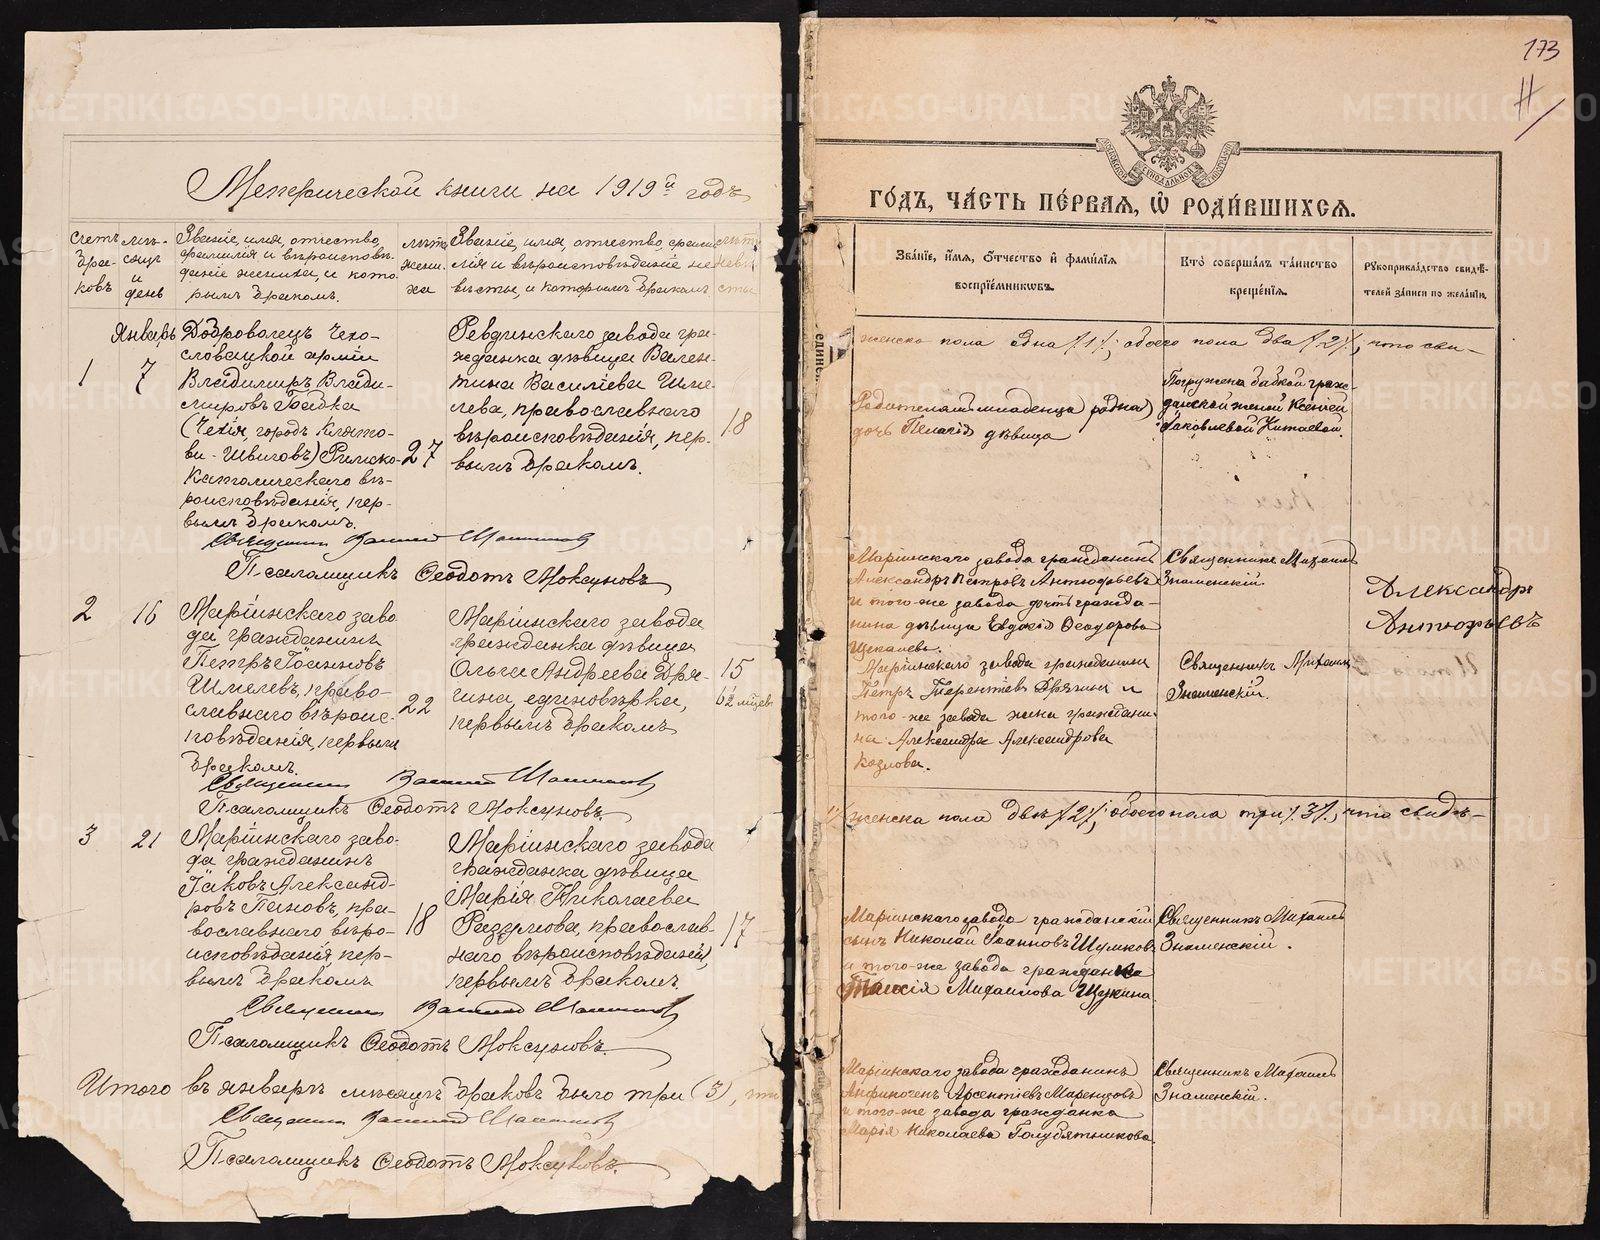 Метрической книги на 1919й годъ
Счетъ браковъ
мѣсяцъ и день
Званіе, имя, отчество,
фамилія и вѣроисповѣ-
даніе жениха, и кото-
рымъ бракомъ.
лѣта жениха
Званіе, имя, отчество, фами-
лія и вѣроисповѣданіе не-
вѣсты, и которымъ бракомъ
Январь
1
7
Доброволецъ Чехо-
словацкой арміи
Владимиръ Влади-
мировъ
(Чехія, городъ
Римско-
Католическаго вѣ-
роисповѣданія, пер-
вымъ бракомъ.
27
Ревдинскаго завода гра-
жданка дѣвица Вален-
тина Василіева Шме-
лева, православнаго
вѣроисповѣданія, пер-
вымъ бракомъ.
18
Священникъ
Псаломщикъ Ѳеодотъ Моксуновъ
2
16
Маріинскаго заво
да гражданинъ
Петръ Іоанновъ
Шмелевъ, право-
славнаго вѣроис-
повѣданія, первымъ
бракомъ.
22
Маріинскаго завода
гражданка дѣвица
Ольга Андреева Дря-
гина, единовѣрка,
первымъ бракомъ
15
Священникъ
Псаломщикъ Ѳеодотъ Моксуновъ.
3
21
Маріинскаго заво-
да гражданинъ
Іаковъ Александ-
ровъ Пановъ, пра-
вославнаго вѣро-
исповѣданія, пер-
вымъ бракомъ
18
Маріинскаго завода
гражданка дѣвица
Марія Николаева
православ-
наго вѣроисповѣданія,
первымъ бракомъ.
17
Священникъ
Псаломщикъ Ѳеодотъ Моксуновъ.
Итого въ январѣ мѣсяцѣ браковъ было три (3),
Священникъ
Псаломщикъ Ѳеодотъ Моксуновъ.
173
ГО́ДЪ, ЧА́СТЬ ПЕ́РВАЯ, Ѽ РОДИ́ВШИХСЯ.
ЗВА́НІЕ, И́МЯ, О́ТЧЕСТВО И́ ФАМИ́ЛІЯ
ВОСПРІЕ́МНИКОВЪ.
КТО̀ СОВЕРША́ЛЪ ТА́ИНСТВО
КРЕЩЕ́НІЯ.
РУКОПРИКЛА́ДСТВО СВИДѢ́-
ТЕЛЕЙ ЗА́ПИСИ ПО ЖЕЛА́НІЮ.
женска пола одна /1/, обоего пола два /2/, что сви-
Родителями младенца родная
дочь Пелагія дѣвица
Погружена бабкой граж-
данской женой Ксеніей
Іаковлевой Китаевой.
Маріинскаго завода гражданинъ
Александръ Петровъ Антюфьевъ
и того-же завода дочь гражда-
нина дѣвица Евдокія Ѳеодорова
Щекалева.
Священникъ Михаилъ
Знаменскій.
Александръ
Антюфьевъ
Маріинскаго завода гражданинъ
Петръ Терентіевъ Дрягинъ и
того-же завода жена граждани-
на Александра Александрова
Козлова.
Священникъ Михаилъ
Знаменскій.
женска пола двѣ /2/, обоего пола три /3/, что свидѣ-
Маріинскаго завода гражданскій
сынъ Николай Іоанновъ Шумковъ
и того-же завода гражданка
Таисія Михаилова Щукина.
Священникъ Михаилъ
Знаменскій.
Маріинскаго завода гражданинъ
Анфиногенъ Арсентіевъ
и того-же завода гражданка
Марія Николаева Голубятникова.
Священникъ Михаилъ
Знаменскій.
METRIKI.GASO-URAL.RU